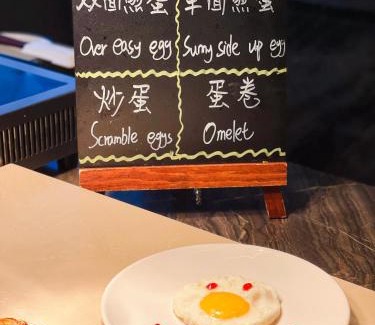 双面煎蛋 单面煎蛋
Over easy egg Sunny side up egg
炒蛋 蛋卷
Scramble eggs Omelet